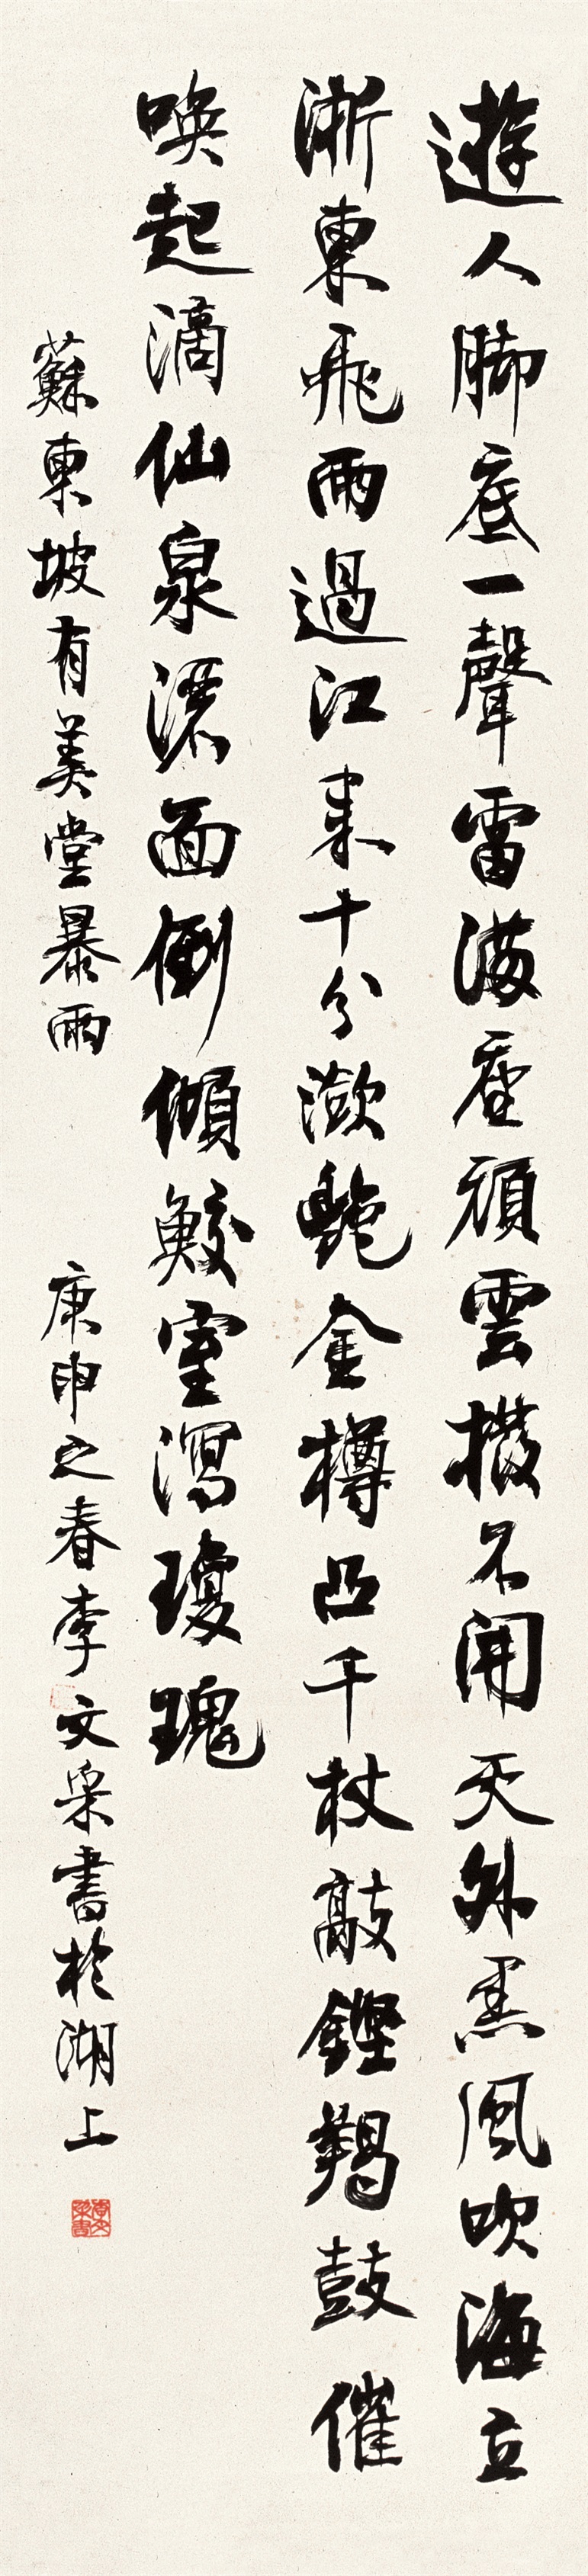 遊人腳底一聲雷滿座頑雲撥不開天外黑風吹海立
淅東飛雨過江來十分瀲灧金樽凸千杖敲鏗羯鼓催
喚起滴仙泉灑面倒傾鮫室瀉瓊瑰
蘇東坡有美堂暴雨 庚申之春李文采書於湖上
李文采書